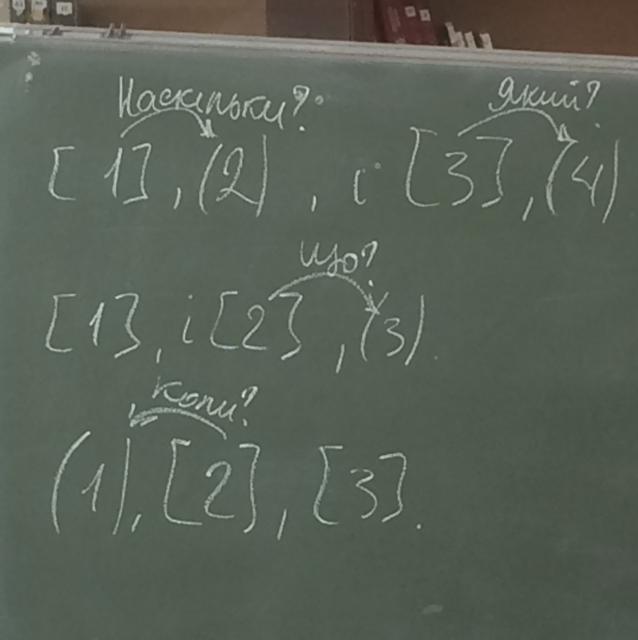 Наскільки? Який?
[1], (2), і [3], (4)
що?
[1], і [2], (3).
коли?
(1), [2], [3].